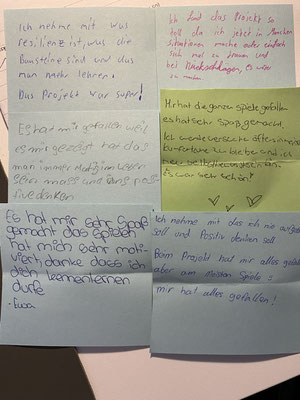 Ich nehme mit was
resilienz ist, was die
Bausteine sind und das
man mehr lehren.
Das Projekt war super!
Ich fand das Projekt so
toll da ich jetzt in manchen
situationen mache oder einfach
sich mal zu trauen und
bei Rückschlägen, es wider
zu machen
Es hat mir gefallen weil
es mir gezeigt hat das
man immer
sein muss und
sitive denken
Mir hat die ganzen Spiele gefallen
es hat sehr Spaß gemacht.
Ich werde versuchen öfters in meine
zu und ich
neu
Es war sehr schön!
Es hat mir sehr Spaß
gemacht das Spielen
hat mich sehr moti-
viert, danke dass ich
dich kennenlernen
durfte
Ich nehme mit das ich nie aufgeben
soll und Positiv denken soll
Beim Projekt hat mir alles gefallen
aber am meisten Spiele
mir hat alles gefallen!